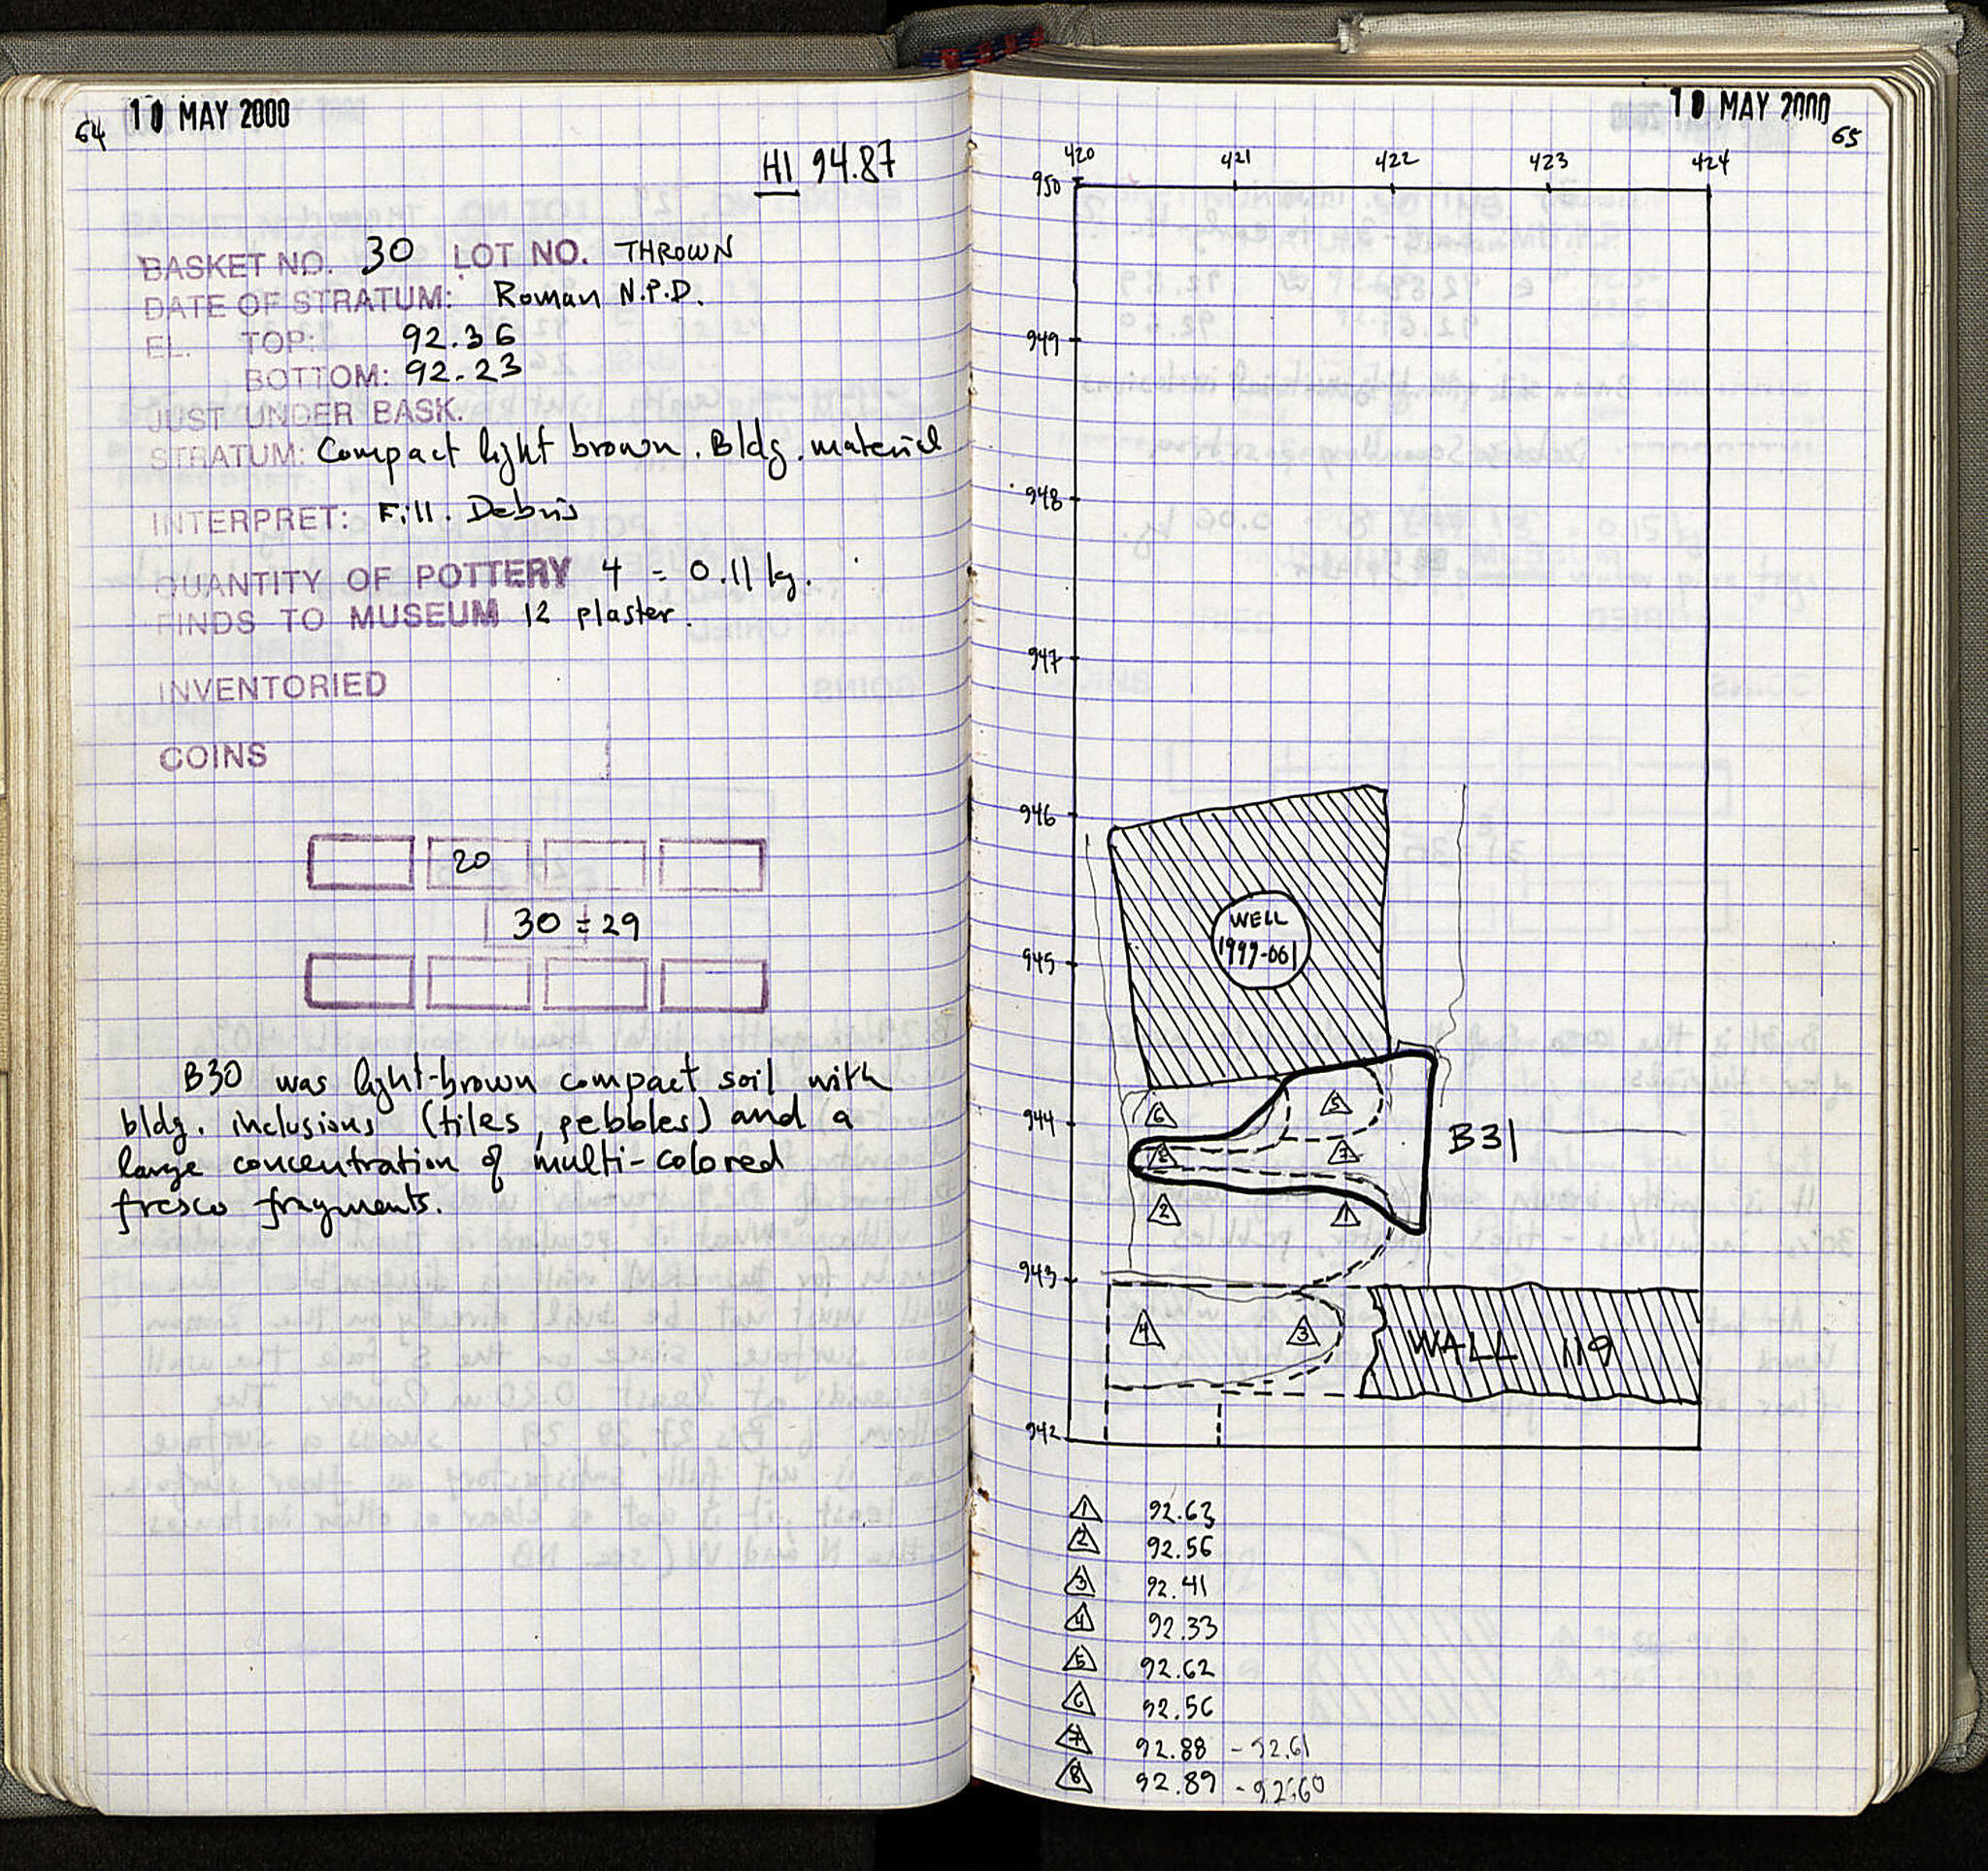 64 10 MAY 2000
HI 94.87
BASKET NO. 30 LOT NO. THROWN
DATE OF STRATUM: Roman N.P.D.
EL. TOP: 92.36
BOTTOM: 92.23
JUST UNDER BASK.
STRATUM: Compact light brown. Bldg. material
INTERPRET: Fill. Debris
QUANTITY OF POTTERY 4 = 0.11 kg.
FINDS TO MUSEUM 12 plaster.
INVENTORIED
COINS
20
30 ÷ 29
B30 was light-brown compact soil with
bldg. inclusions (tiles, pebbles) and a
large concentration of multi-colored
fresco fragments.
10 MAY 2000
65
420 421 422 423 424
950
949
948
947
946
WELL
1999-061
945
944
6 5
B31
8 7
2 1
943
4 3
WALL 119
942
1 92.63
2 92.56
3 92.41
4 92.33
5 92.62
6 92.56
7 92.88 - 92.61
8 92.89 - 92.60